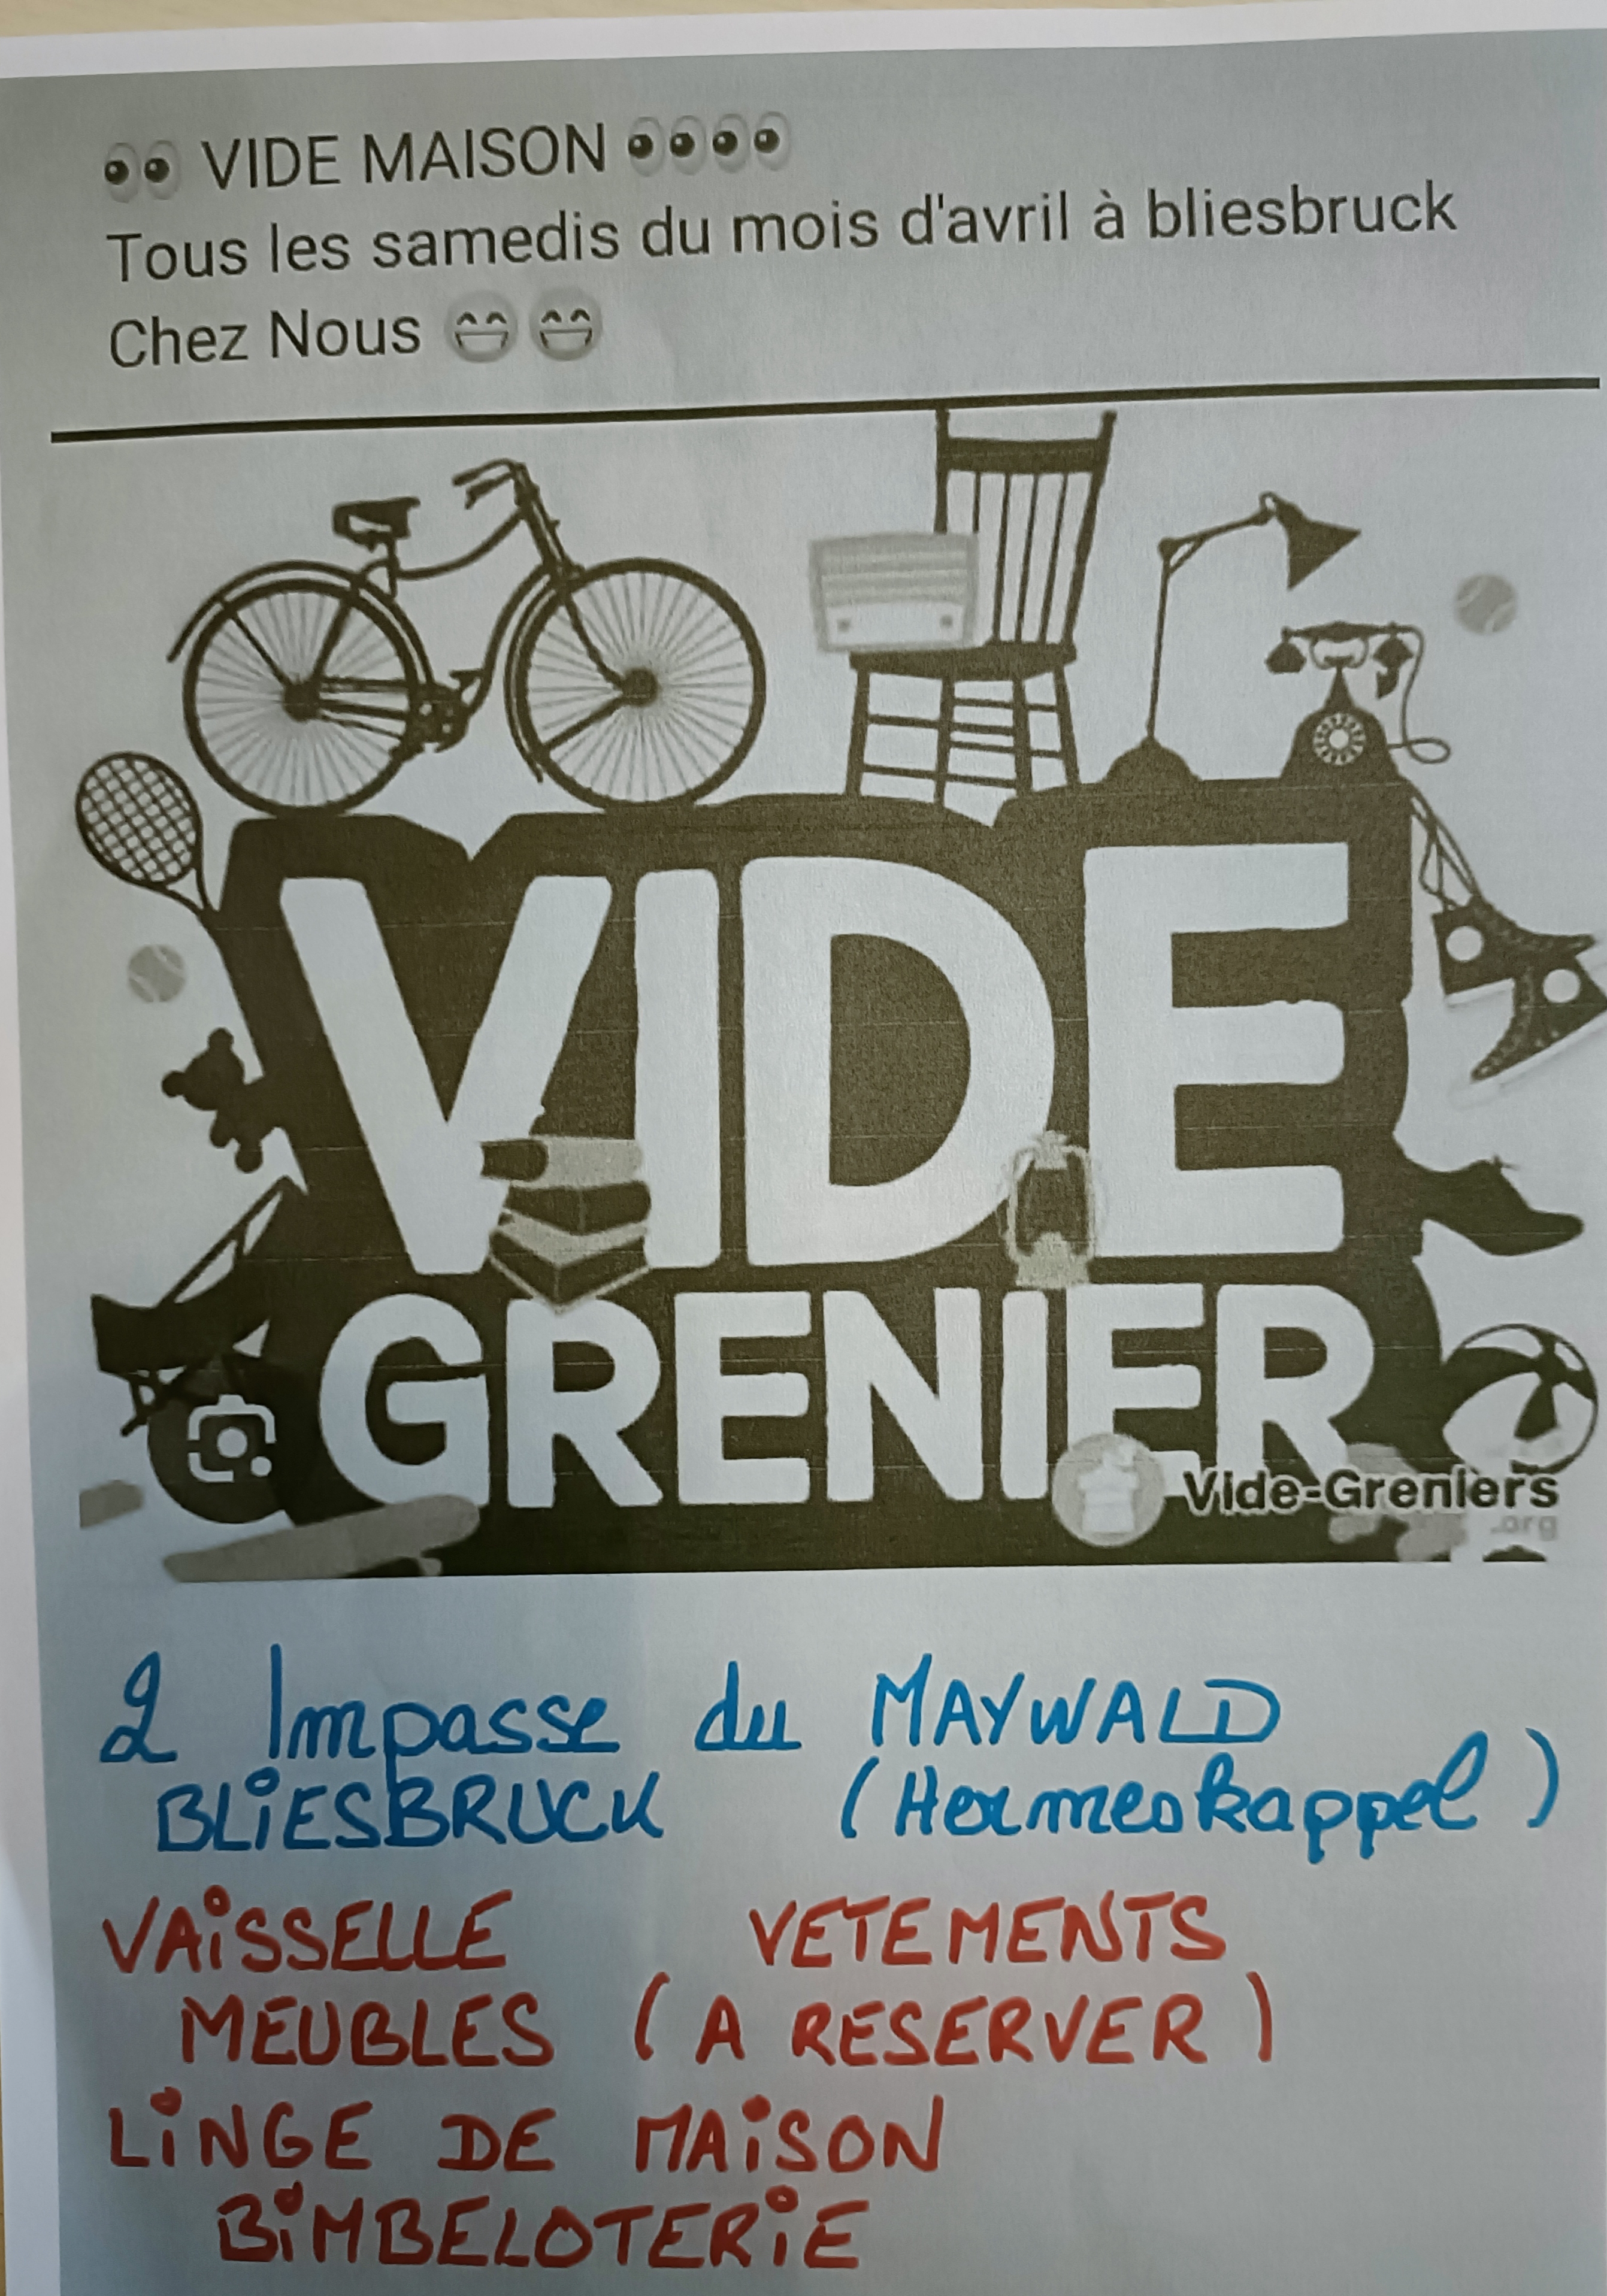 👀 VIDE MAISON 👀👀
Tous les samedis du mois d'avril à bliesbruck
Chez Nous 😁😁
VIDE
GRENIER
Vide-Greniers
.org
2 Impasse du MAYWALD
BLIESBRUCK (Hermeskappel)
VAISSELLE VETEMENTS
MEUBLES (A RESERVER)
LINGE DE MAISON
BIMBELOTERIE